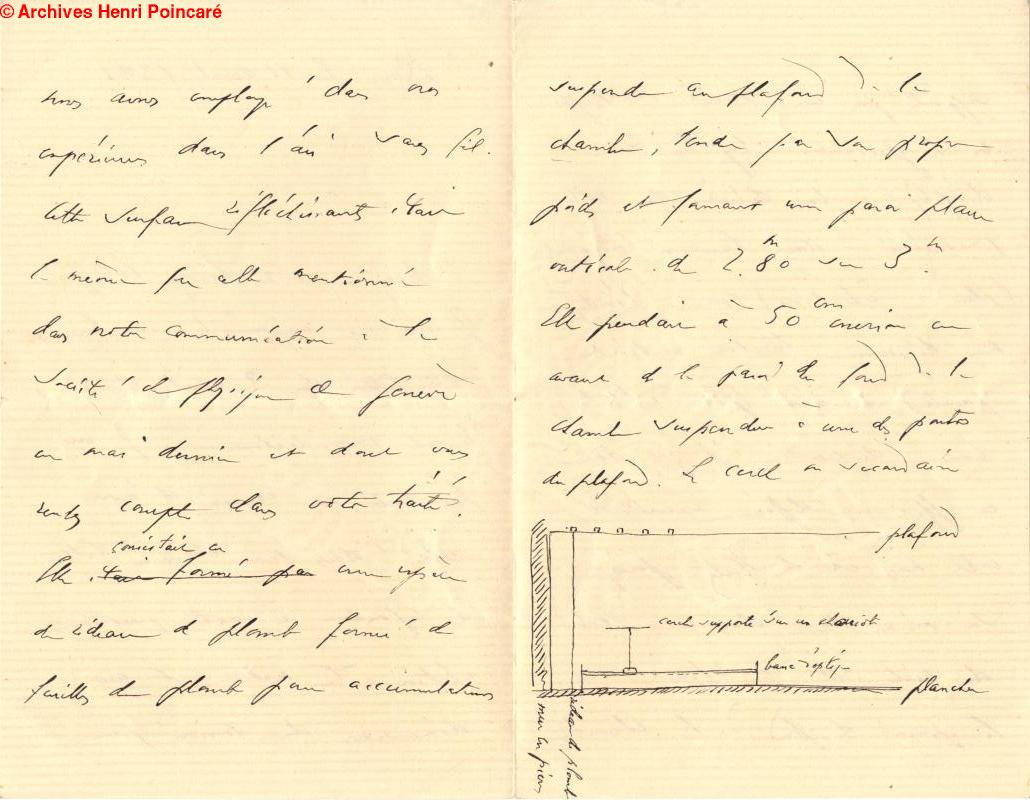 © Archives Henri Poincaré
nous avons employé dans nos
expériences dans l'air sans fil.
Cette surface réfléchissante était
la même que celle mentionnée
dans notre communication à la
Société de physique de Genève
en mai dernier et dont vous
rendez compte dans votre traité.
consistait en
Elle était formée par une espèce
de rideau de plomb formé de
feuilles de plomb pour accumulateurs
suspendu au plafond de la
chambre, tendu par son propre
poids et formant une paroi plane
verticale de 2.m80 sur 3.m
Elle pendait à 50 cm environ en
avant de la paroi du fond de la
chambre suspendue à une des poutres
du plafond. Le cercle secondaire
plafond
cercle supporté sur un chariot
banc d'optiq
plancher
rideau de plomb
mur en pierre